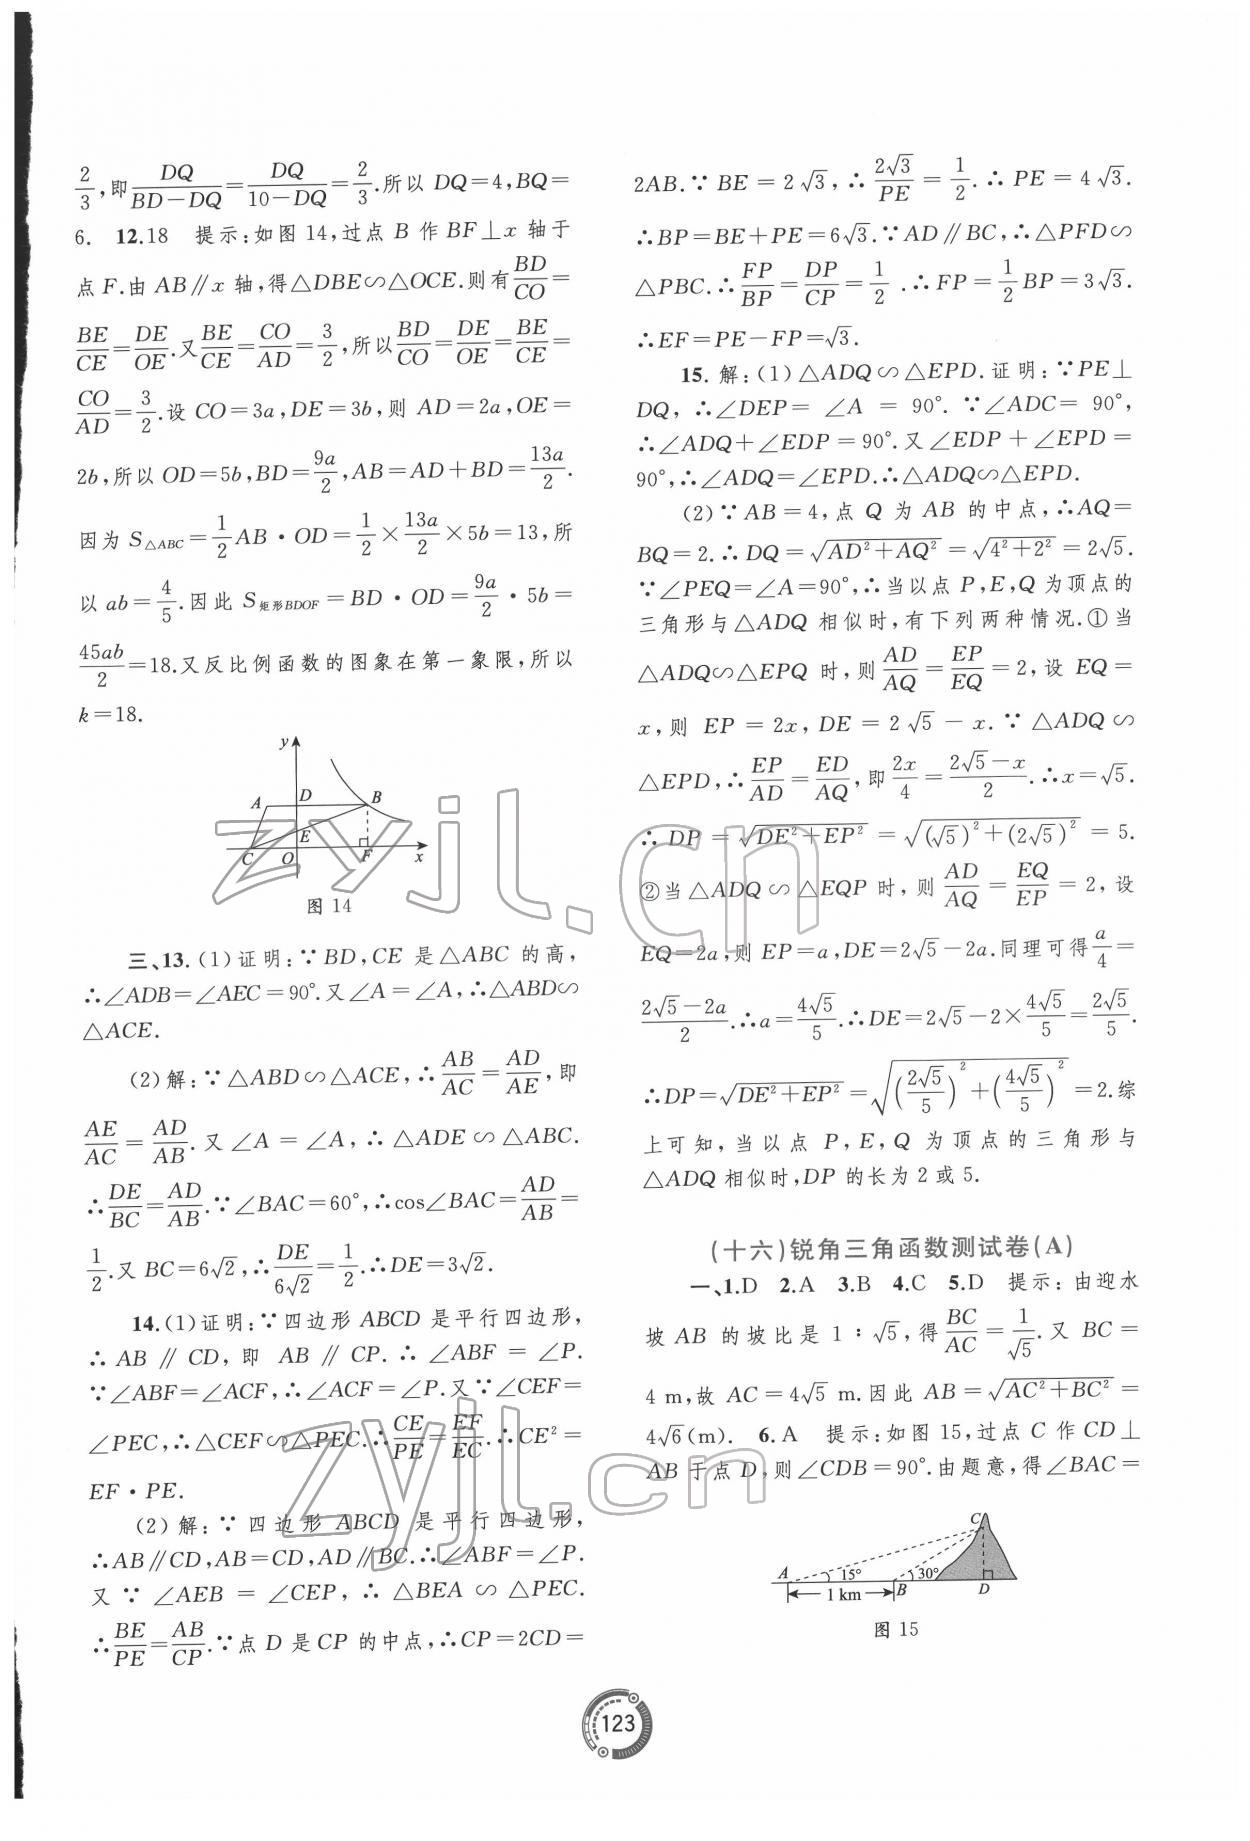 2/3,即DQ/(BD-DQ)=DQ/(10-DQ)=2/3.所以 DQ=4,BQ=
6. 12.18 提示:如图 14,过点 B 作 BF⊥x 轴于
点 F.由 AB∥x 轴,得△DBE∽△OCE.则有BD/CO=
BE/CE=DE/OE.又BE/CE=CO/AD=3/2,所以BD/CO=DE/OE=BE/CE=
CO/AD=3/2.设 CO=3a,DE=3b,则 AD=2a,OE=
2b,所以 OD=5b,BD=9a/2,AB=AD+BD=13a/2.
因为 S△ABC=1/2AB·OD=1/2×13a/2×5b=13,所
以 ab=4/5.因此 S矩形BDOF=BD·OD=9a/2·5b=
45ab/2=18.又反比例函数的图象在第一象限,所以
k=18.
y
A D B
E
C O F x
图 14
三、13.(1)证明:∵BD,CE 是△ABC 的高,
∴∠ADB=∠AEC=90°.又∠A=∠A,∴△ABD∽
△ACE.
(2)解:∵△ABD∽△ACE,∴AB/AC=AD/AE,即
AE/AC=AD/AB.又∠A=∠A,∴△ADE∽△ABC.
∴DE/BC=AD/AB.∵∠BAC=60°,∴cos∠BAC=AD/AB=
1/2.又 BC=6√2,∴DE/6√2=1/2.∴DE=3√2.
14.(1)证明:∵四边形 ABCD 是平行四边形,
∴AB∥CD,即 AB∥CP.∴∠ABF=∠P.
∵∠ABF=∠ACF,∴∠ACF=∠P.又∵∠CEF=
∠PEC,∴△CEF∽△PEC.∴CE/PE=EF/EC.∴CE²=
EF·PE.
(2)解:∵四边形 ABCD 是平行四边形,
∴AB∥CD,AB=CD,AD∥BC.∴∠ABF=∠P.
又∵∠AEB=∠CEP,∴△BEA∽△PEC.
∴BE/PE=AB/CP.∵点 D 是 CP 的中点,∴CP=2CD=
2AB.∵BE=2√3,∴2√3/PE=1/2.∴PE=4√3.
∴BP=BE+PE=6√3.∵AD∥BC,∴△PFD∽
△PBC.∴FP/BP=DP/CP=1/2.∴FP=1/2BP=3√3.
∴EF=PE-FP=√3.
15.解:(1)△ADQ∽△EPD.证明:∵PE⊥
DQ,∴∠DEP=∠A=90°.∵∠ADC=90°,
∴∠ADQ+∠EDP=90°.又∠EDP+∠EPD=
90°,∴∠ADQ=∠EPD.∴△ADQ∽△EPD.
(2)∵AB=4,点 Q 为 AB 的中点,∴AQ=
BQ=2.∴DQ=√(AD²+AQ²)=√(4²+2²)=2√5.
∵∠PEQ=∠A=90°,∴当以点 P,E,Q 为顶点的
三角形与△ADQ 相似时,有下列两种情况.①当
△ADQ∽△EPQ 时,则AD/AQ=EP/EQ=2,设 EQ=
x,则 EP=2x,DE=2√5-x.∵△ADQ∽
△EPD,∴EP/AD=ED/AQ,即2x/4=(2√5-x)/2.∴x=√5.
∴DP=√(DE²+EP²)=√((√5)²+(2√5)²)=5.
②当△ADQ∽△EQP 时,则AD/AQ=EQ/EP=2,设
EQ=2a,则 EP=a,DE=2√5-2a.同理可得a/4=
(2√5-2a)/2.∴a=4√5/5.∴DE=2√5-2×4√5/5=2√5/5.
∴DP=√(DE²+EP²)=√((2√5/5)²+(4√5/5)²)=2.综
上可知,当以点 P,E,Q 为顶点的三角形与
△ADQ 相似时,DP 的长为 2 或 5.
(十六)锐角三角函数测试卷(A)
一、1.D 2.A 3.B 4.C 5.D 提示:由迎水
坡 AB 的坡比是 1∶√5,得BC/AC=1/√5.又 BC=
4 m,故 AC=4√5 m.因此 AB=√(AC²+BC²)=
4√6(m). 6.A 提示:如图 15,过点 C 作 CD⊥
AB 于点 D,则∠CDB=90°.由题意,得∠BAC=
C
A 15° 30°
1 km B D
图 15
123
zyjl.cn
zyjl.cn